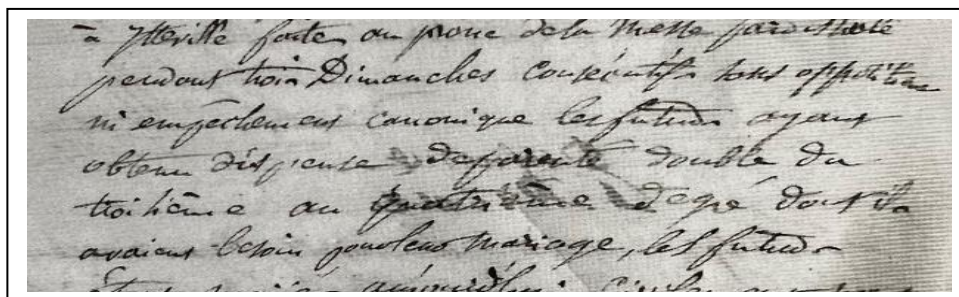 à Itteville faites au prone de la Messe paroissiale
pendant trois Dimanches consécutifs sans opposition
ni empêchement canonique les futurs ayant
obtenu dispense de parenté double du
troisième au quatrième degré dont ils
avaient besoin pour leur mariage, les futurs
aujourd'hui